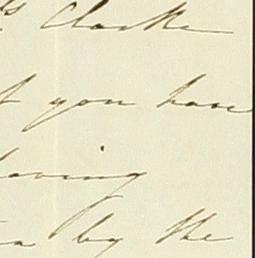 Clarke
you have
having
by the